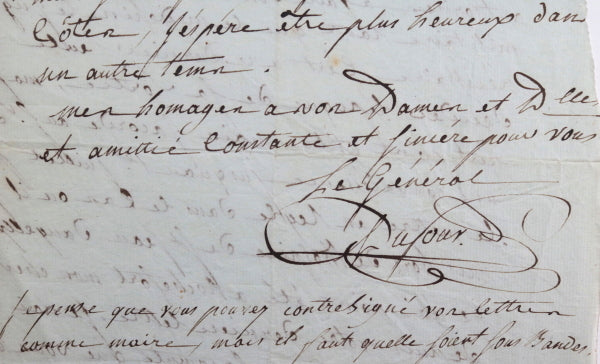 Côten, j'espère être plus heureux dan
un autre temn.
men homagen a von Damen et Dlles
et amittié Constante et Sincère pour vous
Le Général
Dufour. D.
Je pense que vous pouvez contresigné von lettren
comme maire, mais il faut quelle soient sous Bandes.